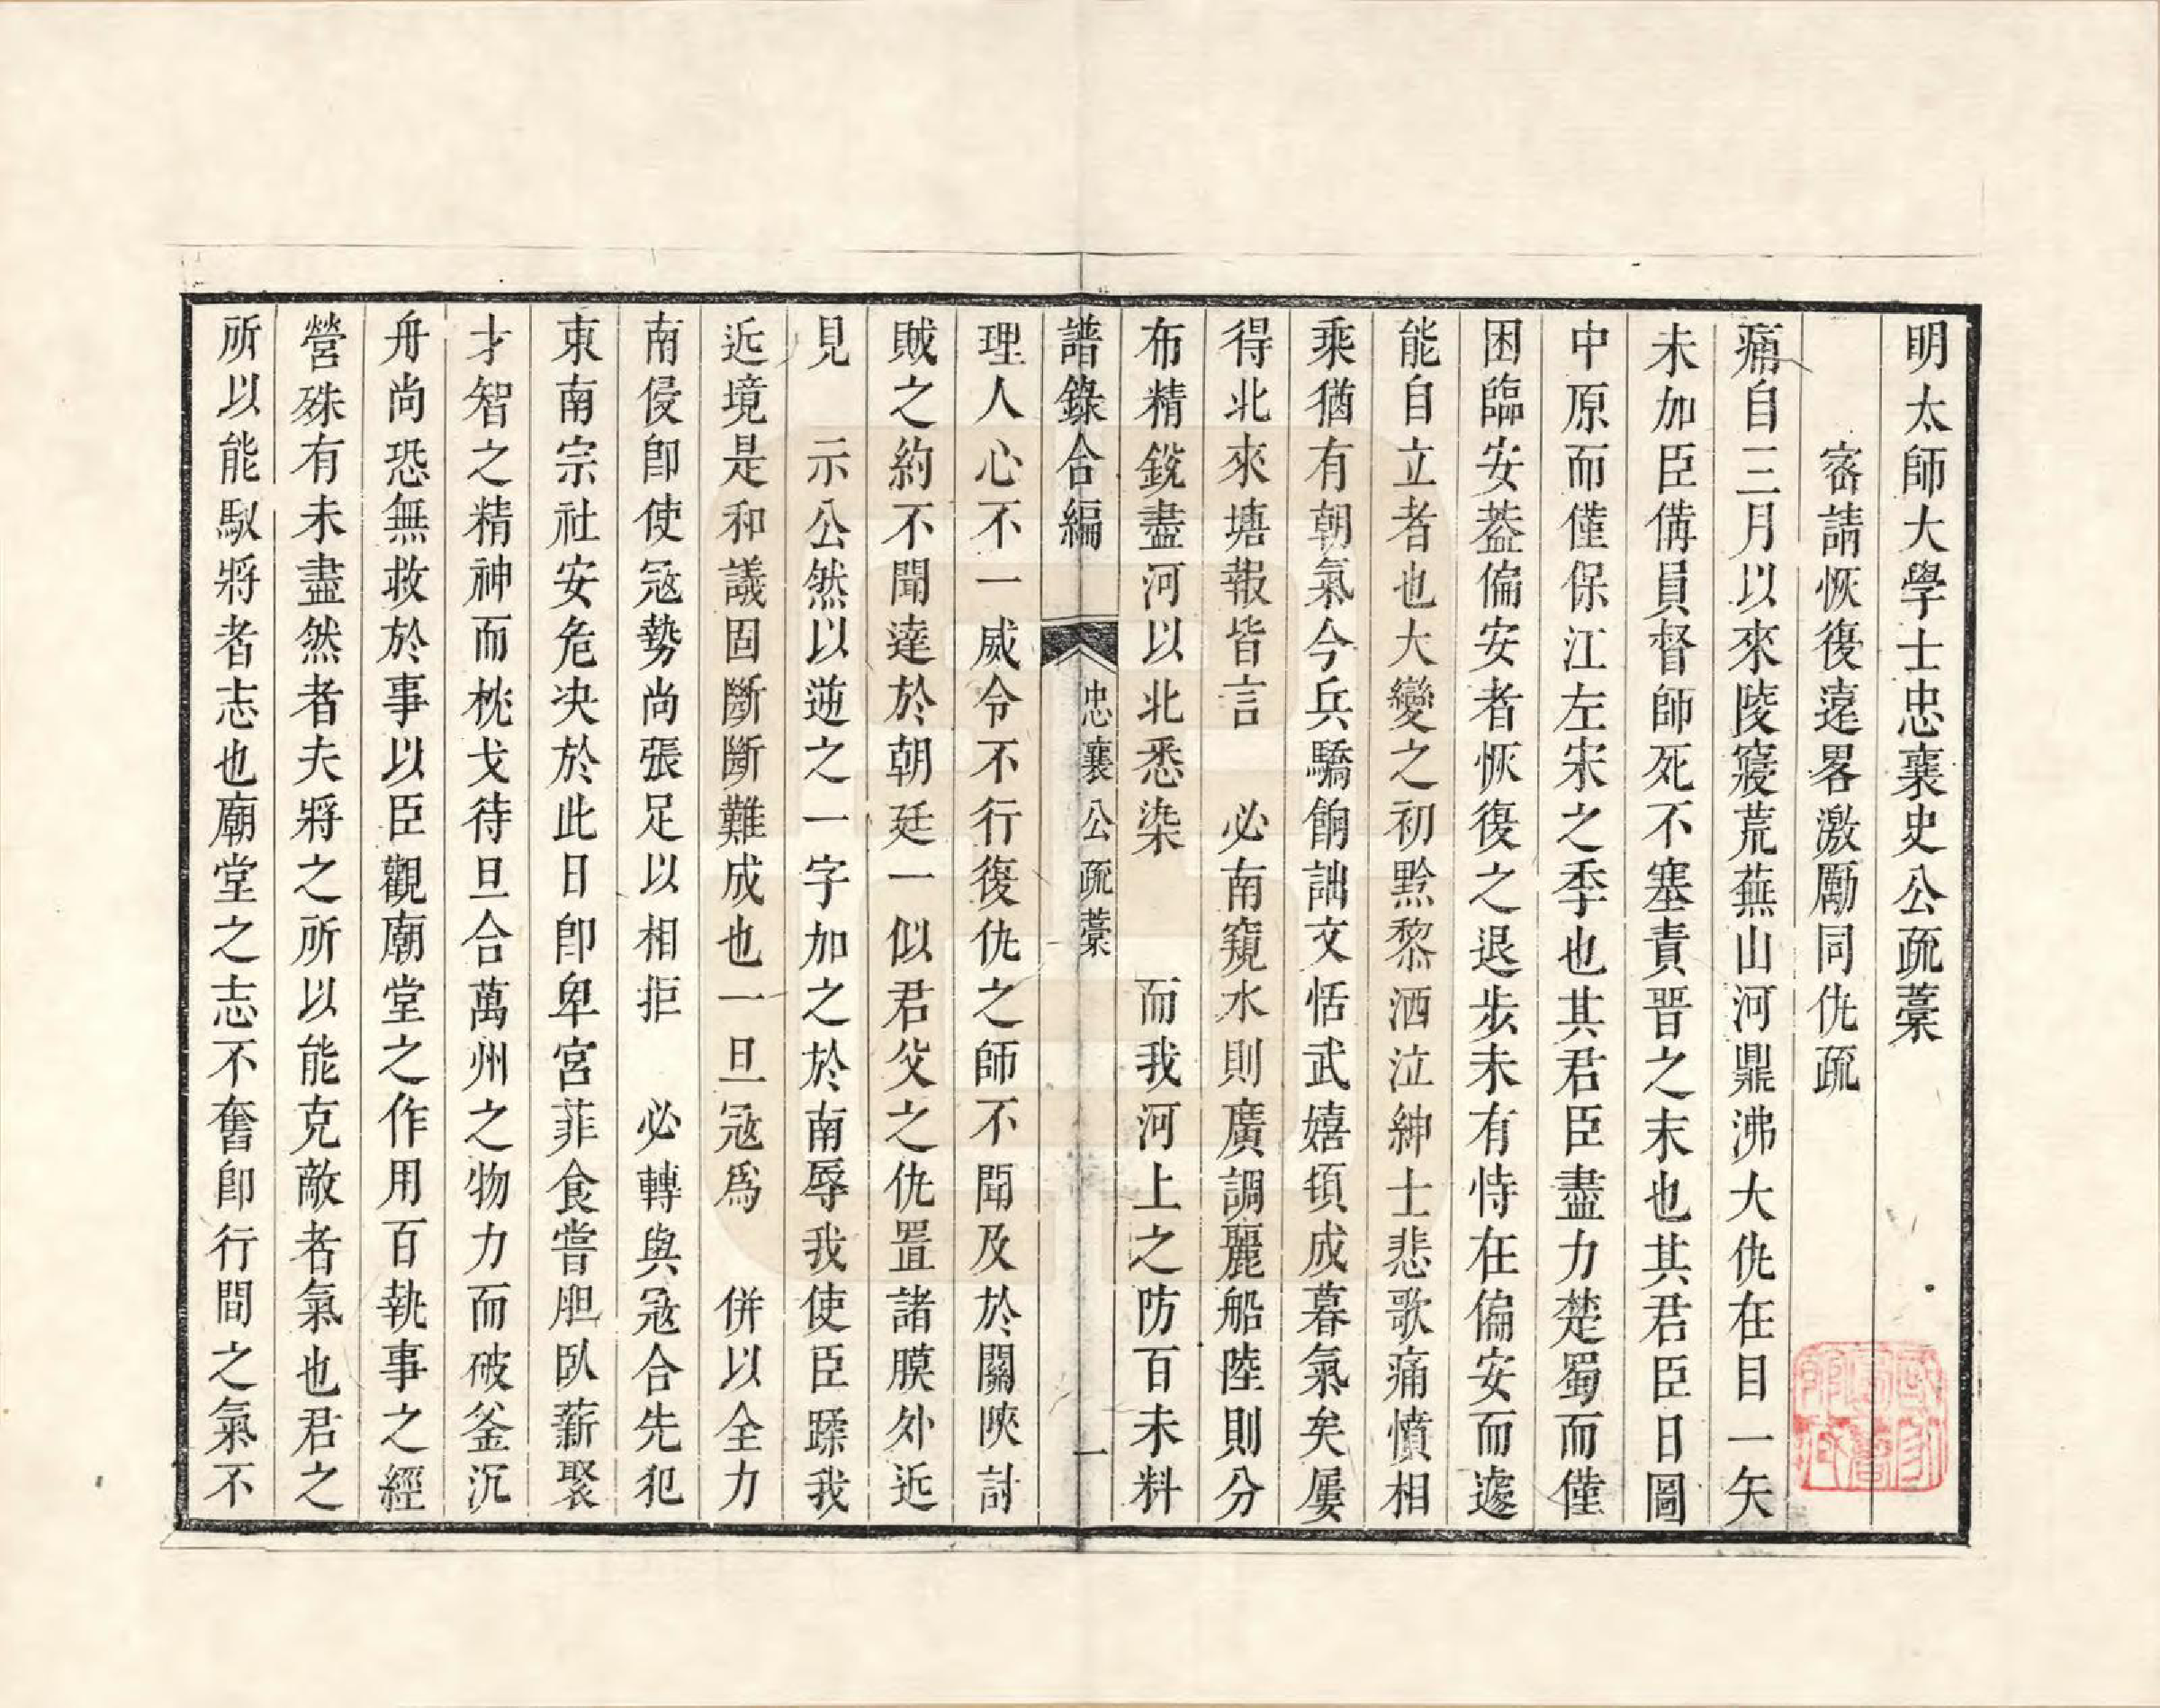 明太師大學士忠襄史公疏藁
密請恢復遠畧激勵同仇疏
痛自三月以來陵寢荒蕪山河鼎沸大仇在目一矢
未加臣備員督師死不塞責晋之末也其君臣日圖
中原而僅保江左宋之季也其君臣盡力楚蜀而僅
困臨安葢偏安者恢復之退步未有恃在偏安而遽
能自立者也大變之初黔黎洒泣紳士悲歌痛憤相
乘猶有朝氣今兵驕餉詘文恬武嬉頓成暮氣矣屢
得北來塘報皆言　必南窺水則廣調麗船陸則分
布精銳盡河以北悉染　　而我河上之防百未料
譜錄合編　忠襄公疏藁　一
理人心不一威令不行復仇之師不聞及於關陝討
賊之約不聞達於朝廷一似君父之仇置諸膜外近
見　示公然以逆之一字加之於南辱我使臣蹂我
近境是和議固斷斷難成也一旦冦爲　併以全力
南侵卽使冦勢尚張足以相拒　必轉與冦合先犯
東南宗社安危决於此日卽卑宮菲食嘗胆臥薪聚
才智之精神而枕戈待旦合萬州之物力而破釜沉
舟尚恐無救於事以臣觀廟堂之作用百執事之經
營殊有未盡然者夫將之所以能克敵者氣也君之
所以能馭將者志也廟堂之志不奮卽行間之氣不